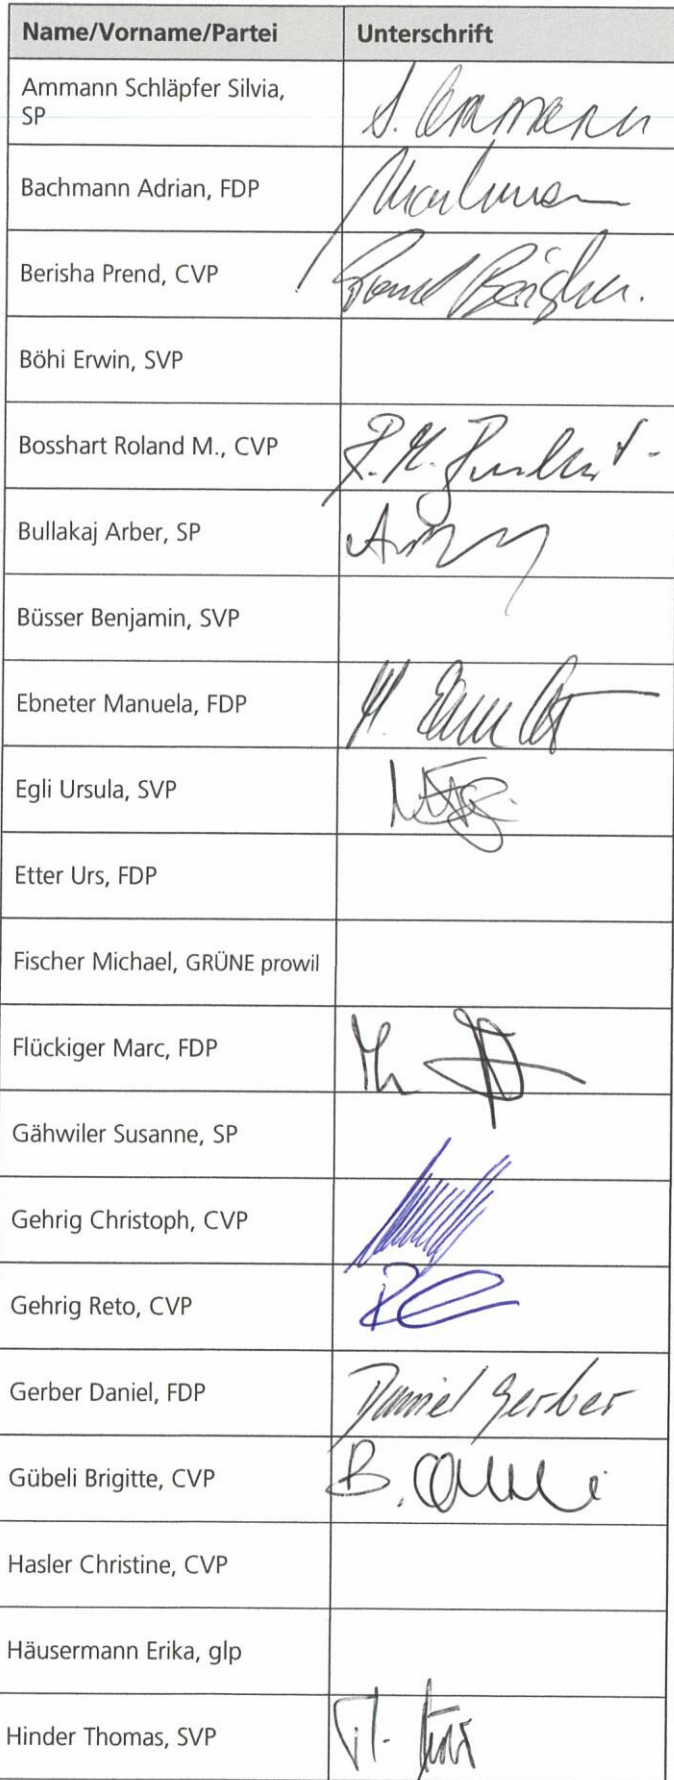 Name/Vorname/Partei Unterschrift
Ammann Schläpfer Silvia,
SP
S. Ammann
Bachmann Adrian, FDP
Berisha Prend, CVP Prend Berisha.
Böhi Erwin, SVP
Bosshart Roland M., CVP R.M. Bosshart
Bullakaj Arber, SP
Büsser Benjamin, SVP
Ebneter Manuela, FDP M. Ebneter
Egli Ursula, SVP
Etter Urs, FDP
Fischer Michael, GRÜNE prowil
Flückiger Marc, FDP
Gähwiler Susanne, SP
Gehrig Christoph, CVP
Gehrig Reto, CVP
Gerber Daniel, FDP Daniel Gerber
Gübeli Brigitte, CVP B. Gübeli
Hasler Christine, CVP
Häusermann Erika, glp
Hinder Thomas, SVP